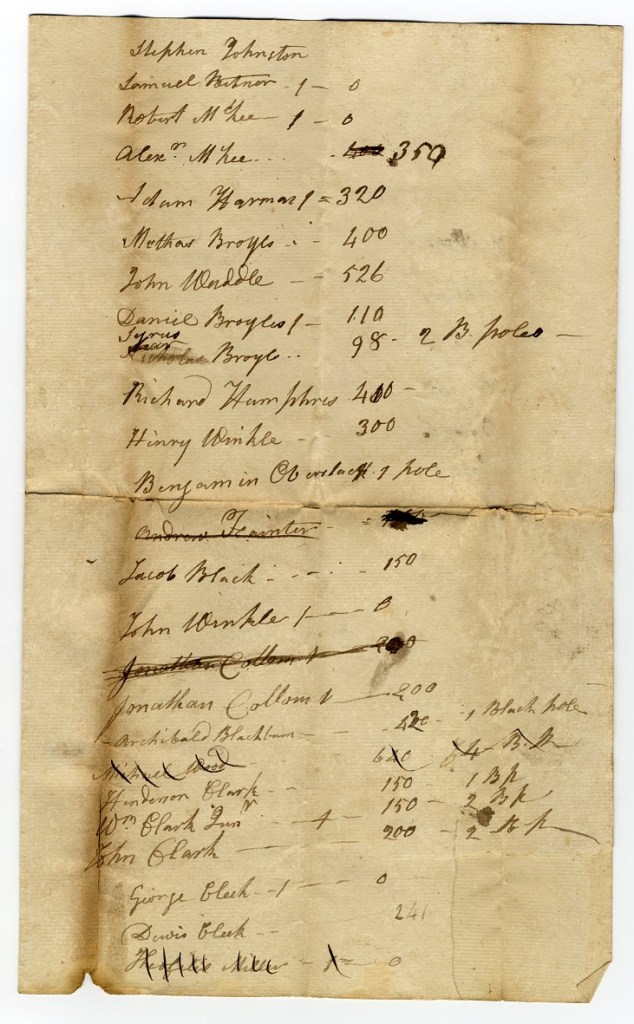 Stephen Johnston
Samuel Bitner 1 — 0
Robert McKee — 1 — 0
Alexr McKee . . . 400 350
Adam Harmas 1 = 320
Mathas Broyls . - 400
John Waddle — - 526
Daniel Broyles 1 — 110
Syrus
Broyls . . 98 - 2 B. poles —
Richard Humphres 400 —
Henry Winkle — - 300
Benjamin 1 pole
Andrew —
Jacob Black - - - . - 150
John Winkle 1 — — 0
Jonathan Collom 1 — 200
Jonathan Collom 1 — 200
Archibald Blackburn — 1 Black pole
Michael Wood 640 4 B. P
Henderson Clark 150 1 B p
Wm Clark Junr - - 1 — 150 - 2 B p
John Clark — 200 - 2 B p
George Cleek - - 1 — — 0
Davis Cleek - - 241
Miller - 1 = 0